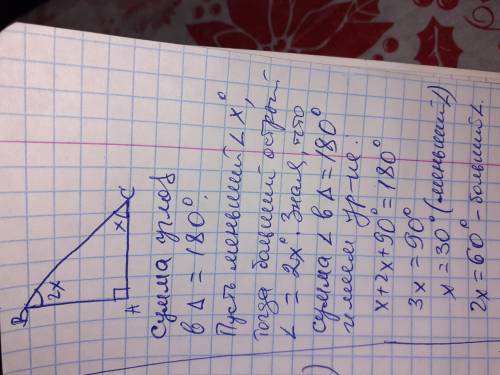 B
2x
A
x
C
Сумма углов
в Δ = 180°.
Пусть меньший ∠ x°,
тогда больший острый
∠ = 2x°. Зная, что
сумма ∠ в Δ = 180°
имеем ур-ие:
x+2x+90°=180°
3x=90°
x=30° (меньший ∠)
2x=60° - больший ∠.